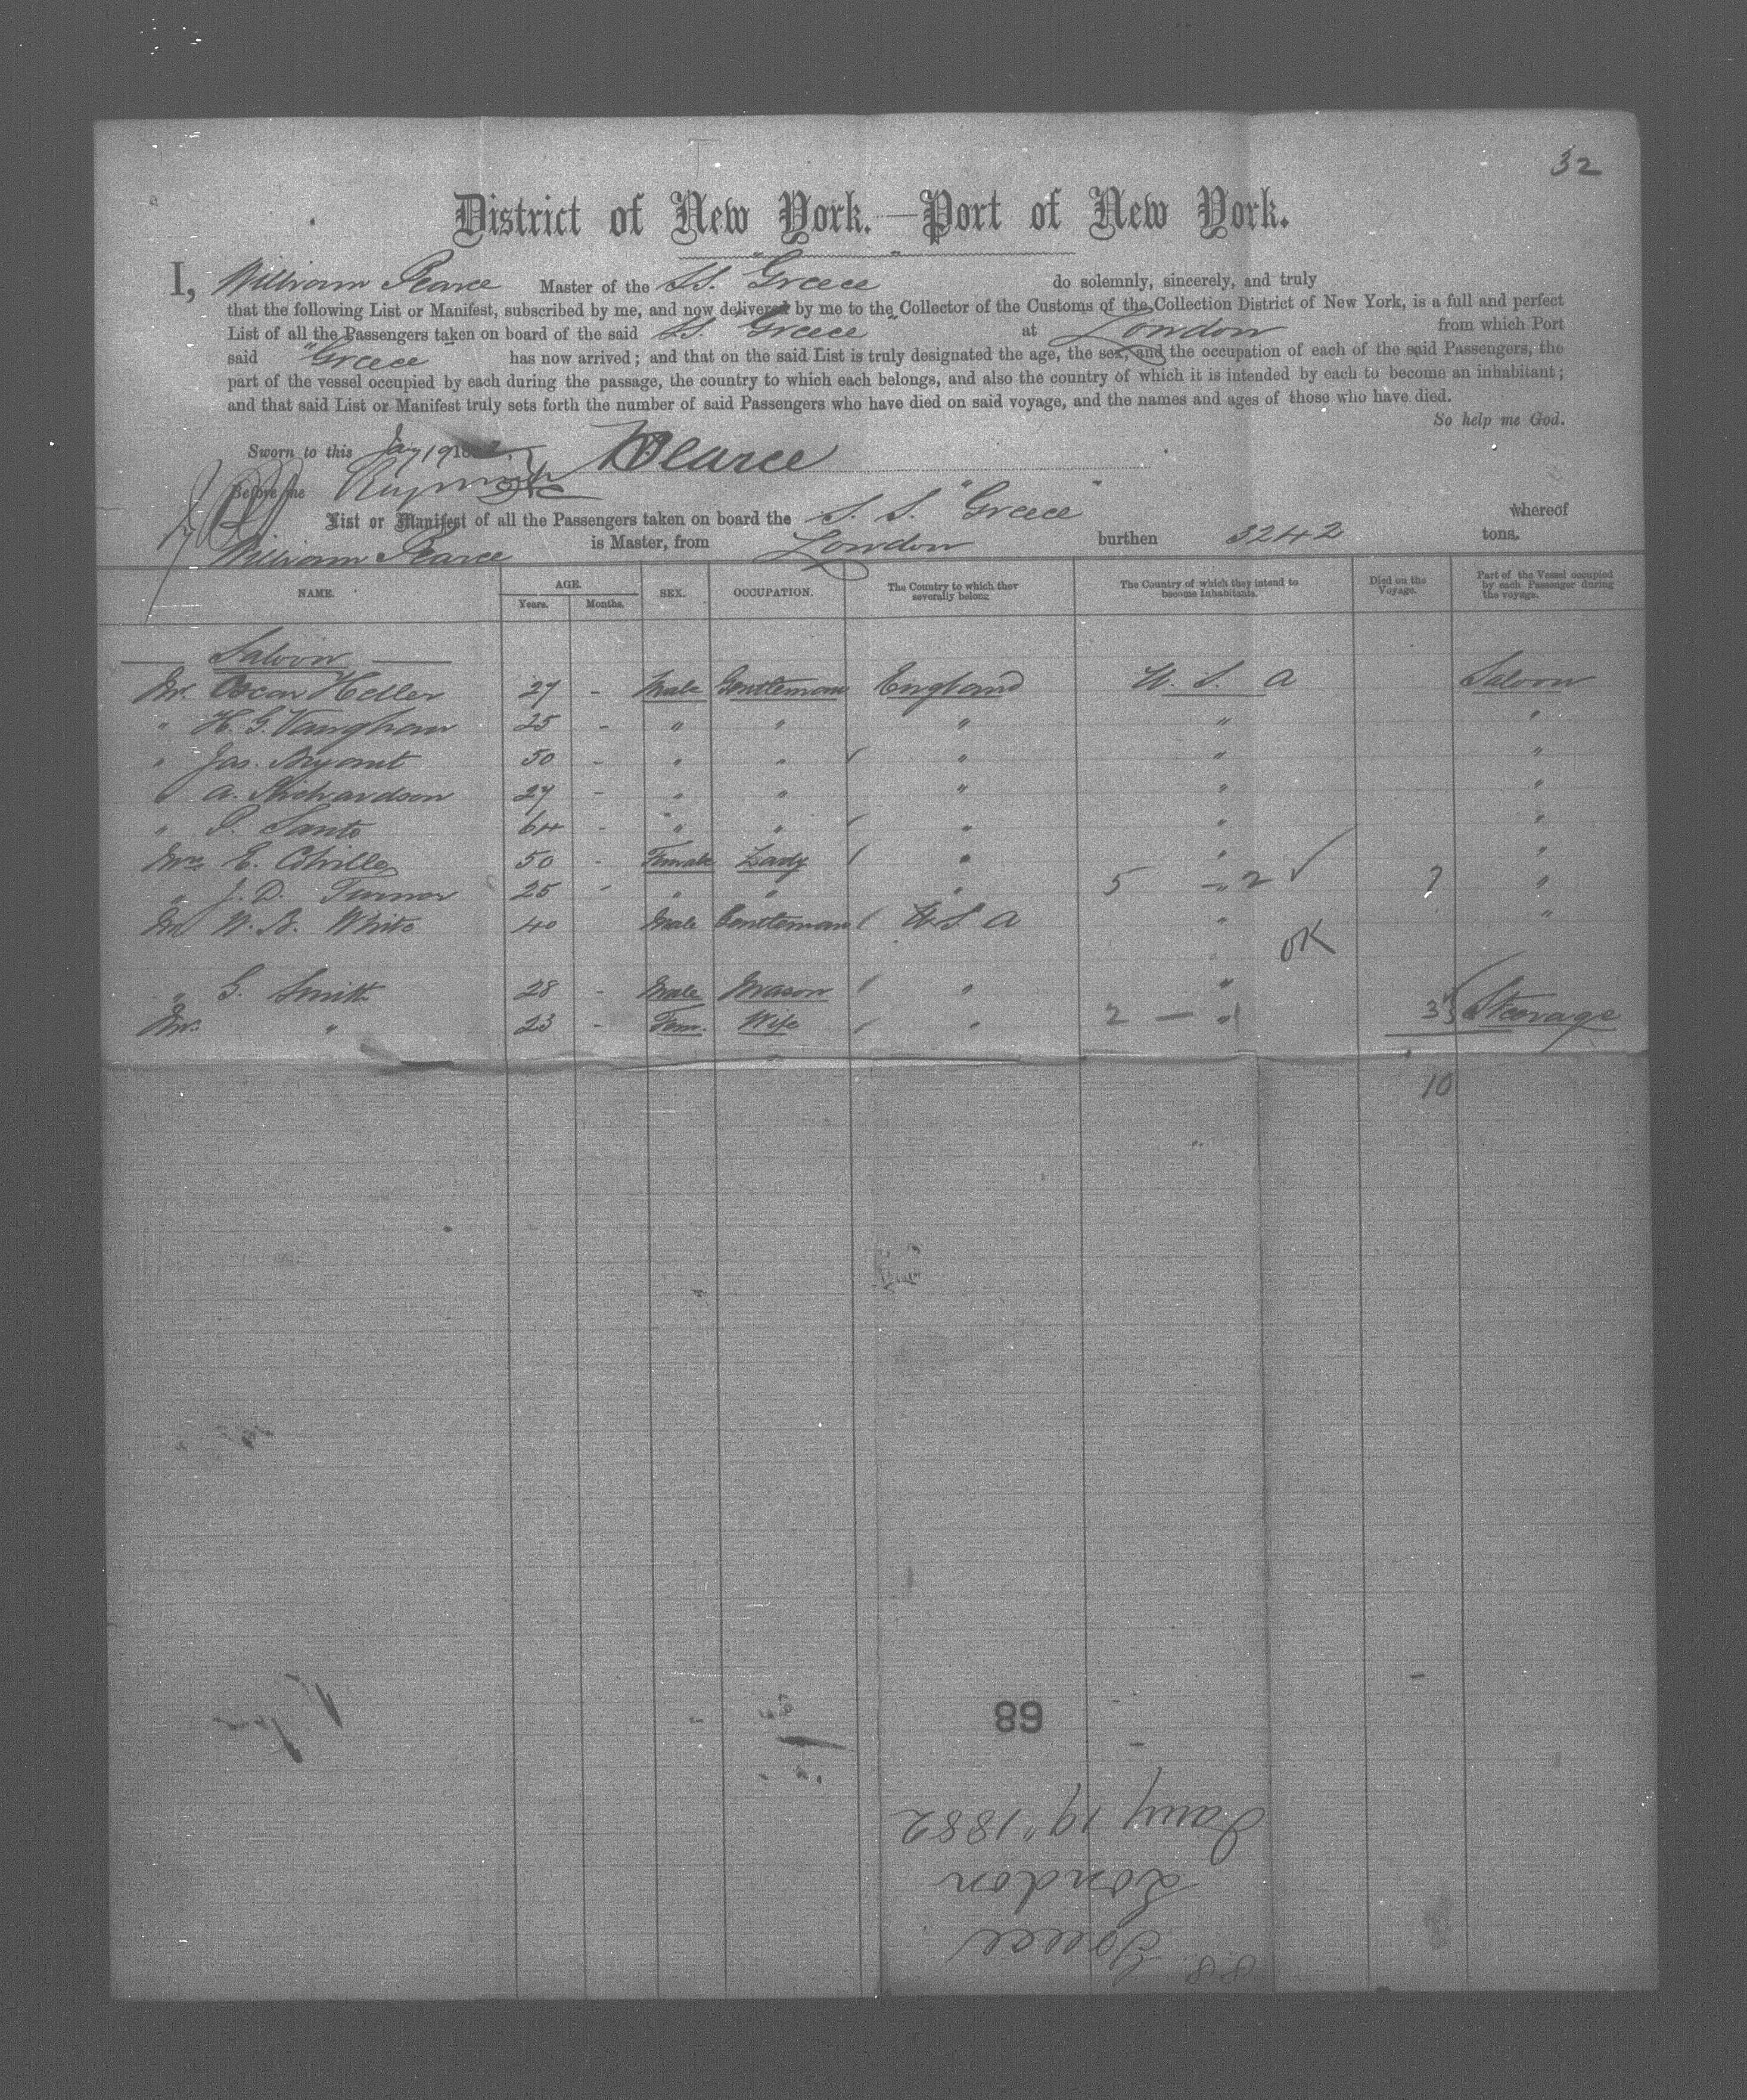 32
District of New York.—Port of New York.
I, William Pearce Master of the SS. "Greece" do solemnly, sincerely, and truly
that the following List or Manifest, subscribed by me, and now delivered by me to the Collector of the Customs of the Collection District of New York, is a full and perfect
List of all the Passengers taken on board of the said S.S. "Greece" at London from which Port
said "Greece" has now arrived; and that on the said List is truly designated the age, the sex, and the occupation of each of the said Passengers, the
part of the vessel occupied by each during the passage, the country to which each belongs, and also the country of which it is intended by each to become an inhabitant;
and that said List or Manifest truly sets forth the number of said Passengers who have died on said voyage, and the names and ages of those who have died.
So help me God.
Sworn to this Jany 19 1882, WPearce
Before me
List or Manifest of all the Passengers taken on board the S. S. "Greece" whereof
William Pearce is Master, from London burthen 3242 tons.
NAME. AGE. Years. Months. SEX. OCCUPATION. The Country to which they severally belong The Country of which they intend to become Inhabitants. Died on the Voyage. Part of the Vessel occupied by each Passenger during the voyage.
Saloon
Mr. Oscar Heller 27 - Male Gentleman England U. S. A Saloon
" H. G. Vaughan 25 - " " " " "
" Jas. Bryant 50 - " " " " "
" A. Richardson 27 - " " " " "
" P. Santo 64 - " " " " "
Mrs E. 50 - Female Lady " " "
" J. D. Turnor 25 - " " " 5 - 2 7 "
Mr W. B. White 40 Male Gentleman U.S A " "
OK
" G. Smith 28 - Male Mason " "
Mrs. " 23 - Fem. Wife " 2 — 1 3 Steerage
10
89
Jany 19" 1882
London
S.S. Greece